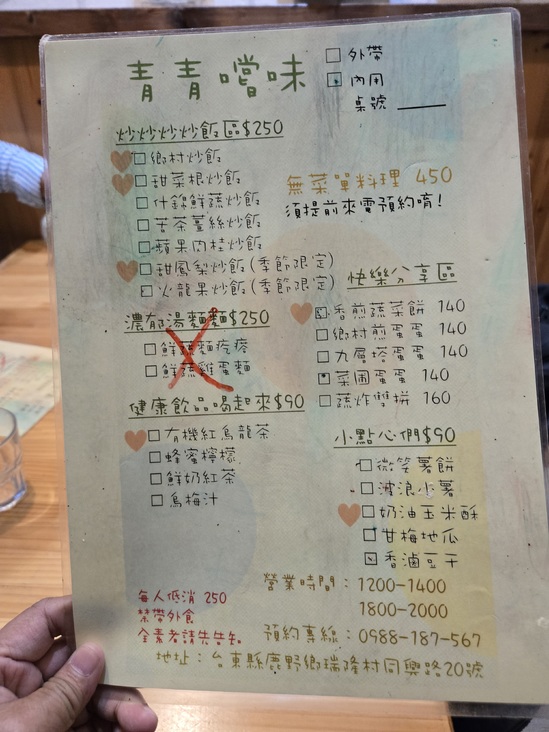 青青嚐味
□ 外帶
□ 內用
桌號 ____
炒炒炒炒飯區$250
□ 鄉村炒飯
□ 甜菜根炒飯
□ 什錦鮮蔬炒飯
□ 苦茶薑絲炒飯
□ 蘋果肉桂炒飯
□ 甜鳳梨炒飯(季節限定)
□ 火龍果炒飯(季節限定)
無菜單料理 450
須提前來電預約唷!
濃郁湯麵麵$250
□ 鮮蔬麵疙瘩
□ 鮮蔬雞蛋麵
健康飲品喝起來$90
□ 有機紅烏龍茶
□ 蜂蜜檸檬
□ 鮮奶紅茶
□ 烏梅汁
快樂分享區
□ 香煎蔬菜餅 140
□ 鄉村煎蛋蛋 140
□ 九層塔蛋蛋 140
□ 菜圃蛋蛋 140
□ 蔬炸雙拼 160
小點心們$90
□ 微笑薯餅
□ 波浪小薯
□ 奶油玉米酥
□ 甘梅地瓜
□ 香滷豆干
每人低消 250
禁帶外食
全素者請先告知
營業時間:1200-1400
1800-2000
預約專線:0988-187-567
地址:台東縣鹿野鄉瑞隆村同興路20號